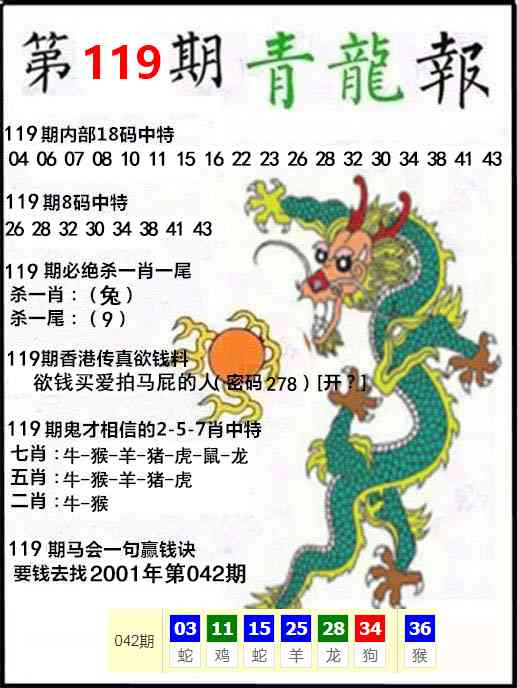 第119期青龍報
119期内部18码中特
04 06 07 08 10 11 15 16 22 23 26 28 32 30 34 38 41 43
119期8码中特
26 28 32 30 34 38 41 43
119期必绝杀一肖一尾
杀一肖：（兔）
杀一尾：（9）
119期香港传真欲钱料
欲钱买爱拍马屁的人（密码278）[开？]
119期鬼才相信的2-5-7肖中特
七肖：牛-猴-羊-猪-虎-鼠-龙
五肖：牛-猴-羊-猪-虎
二肖：牛-猴
119期马会一句赢钱诀
要钱去找2001年第042期
042期 03 11 15 25 28 34 36
蛇 鸡 蛇 羊 龙 狗 猴